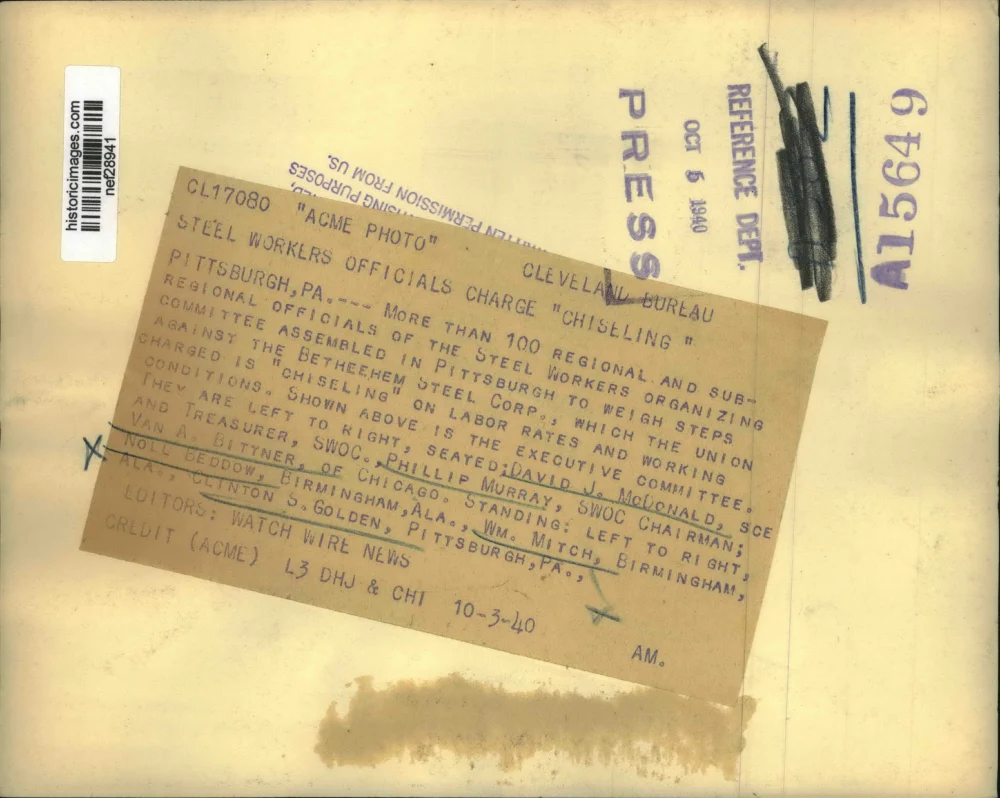 historicimages.com
nef28941
TISING PURPOSES
RITTEN PERMISSION FROM US.
PRESS
OCT 5 1940
REFERENCE DEPT.
A15649
CL17080 "ACME PHOTO" CLEVELAND BUREAU
STEEL WORKERS OFFICIALS CHARGE "CHISELING"
PITTSBURGH,PA.--- MORE THAN 100 REGIONAL AND SUB-
REGIONAL OFFICIALS OF THE STEEL WORKERS ORGANIZING
COMMITTEE ASSEMBLED IN PITTSBURGH TO WEIGH STEPS
AGAINST THE BETHEEHEM STEEL CORP., WHICH THE UNION
CHARGED IS "CHISELING" ON LABOR RATES AND WORKING
CONDITIONS. SHOWN ABOVE IS THE EXECUTIVE COMMITTEE.
THEY ARE LEFT TO RIGHT, SEATED:DAVID J. MCDONALD, SCE
AND TREASURER, SWOC., PHILLIP MURRAY, SWOC CHAIRMAN;
VAN A. BITTNER, OF CHICAGO. STANDING: LEFT TO RIGHT,
NOLL BEDDOW, BIRMINGHAM,ALA., WM. MITCH, BIRMINGHAM,
ALA., CLINTON S.GOLDEN, PITTSBURGH,PA.,
EDITORS: WATCH WIRE NEWS
CREDIT (ACME) L3 DHJ & CHI 10-3-40 AM.